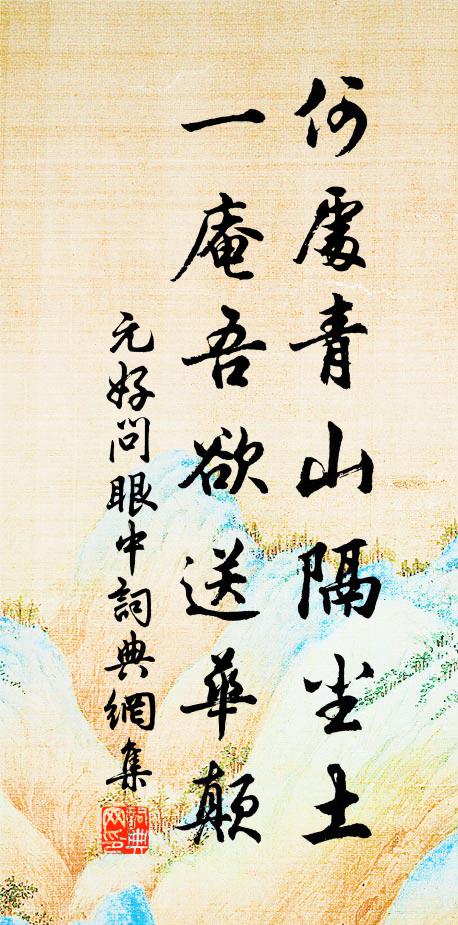 何處青山隔尘土
一庵吾欲送華顛
元好問眼中詞典網集
詞典
网印